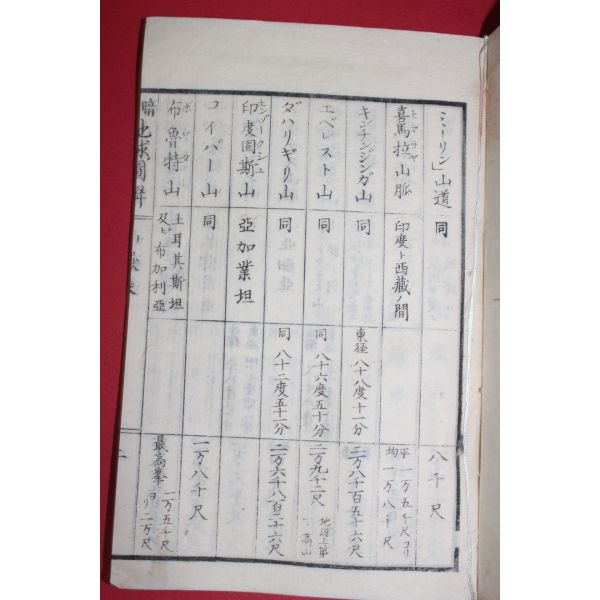 ミーリン」山道 同 八千尺
ヒマラヤ
喜馬拉山脈 印度ト西藏ノ間 平均 一万五千尺ヨリ 一万八千尺
キンチンジンガ山 同 東徑八十八度十一分 二万八千百五十六尺
エベレスト山 同 同八十六度五十八分 二万九千二尺 地球上第一ノ高山
ダハリギリ山 同 同八十二度五十一分 二万六千八百二十六尺
ヒンヅークシュ
印度固斯山 亞加業坦
コイバー山 同 一万八千尺
ボロタ
布魯特山 土耳其斯坦及ヒ布加利亞 最高峯 一万五千尺ヨリ二万尺
暗 地球圖解